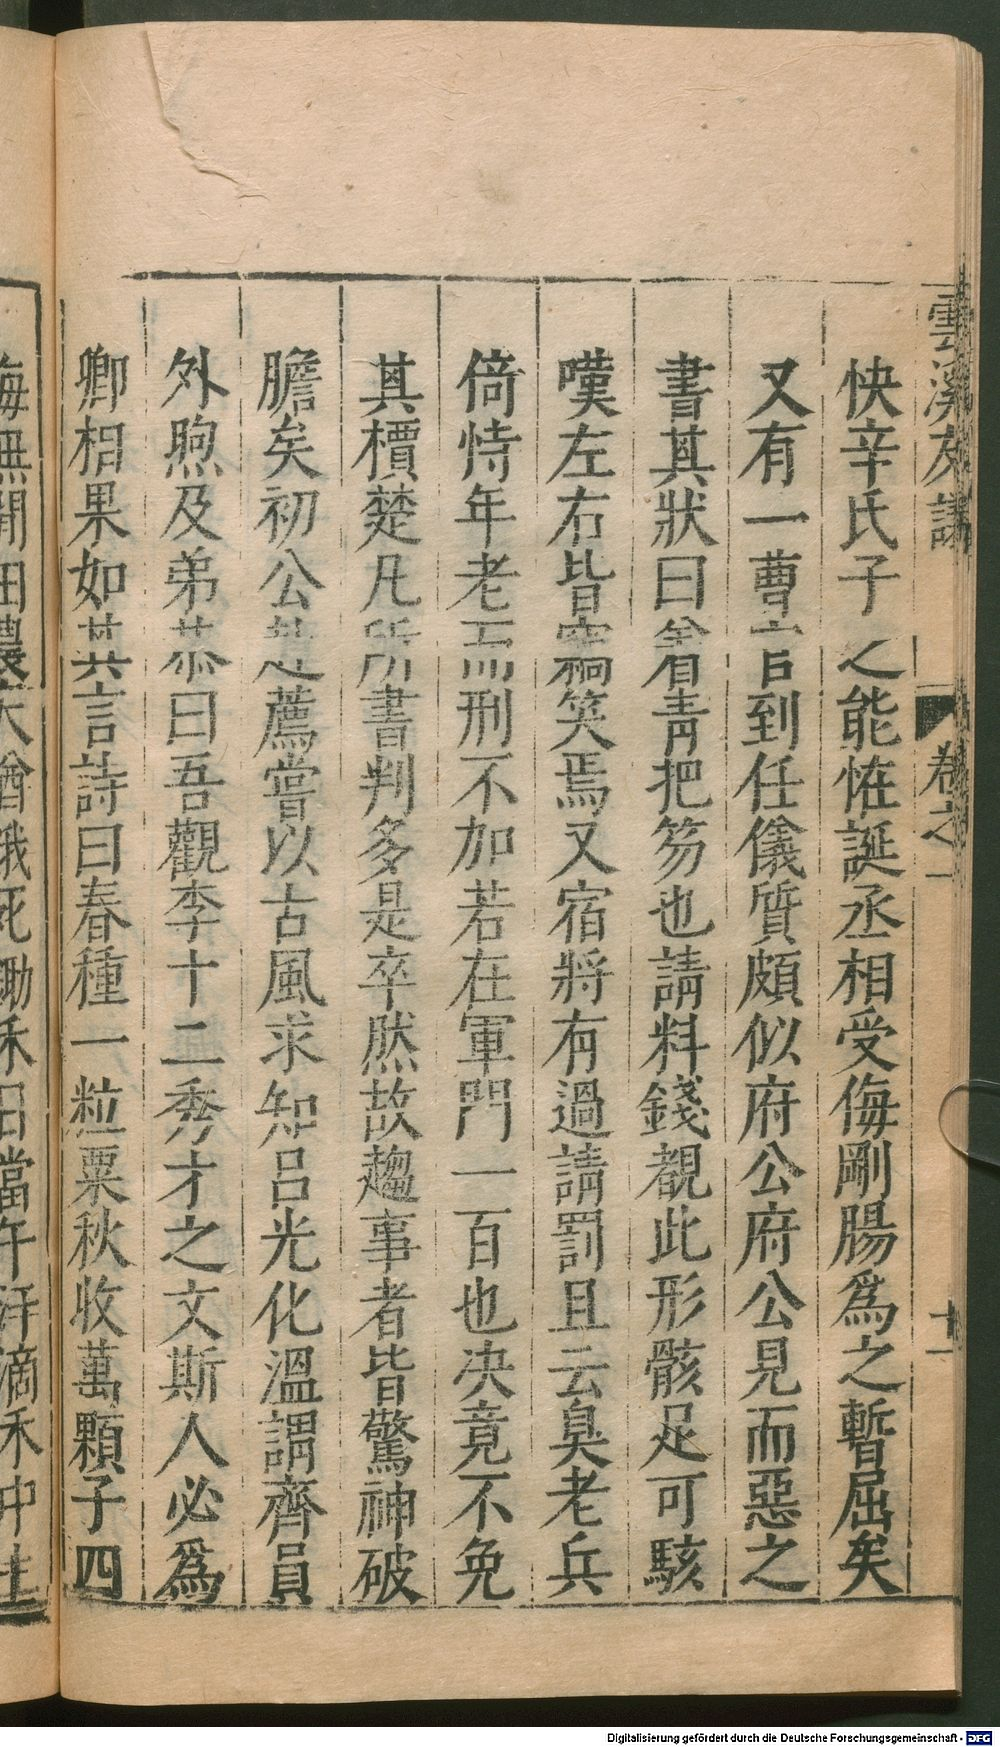 雲溪友議 卷之一 十一
快辛氏子之能恠誕丞相受侮剛腸爲之暫屈矣
又有一曹官到任儀質頗似府公府公見而惡之
書其狀曰着青把笏也請料錢覩此形骸足可駭
嘆左右皆竊笑焉又宿將有過請罰且云臭老兵
倚恃年老而刑不加若在軍門一百也决竟不免
其檟楚凡所書判多是卒然故趨事者皆驚神破
膽矣初公赴薦嘗以古風求知呂光化溫謂齊員
外煦及弟恭曰吾觀李十二秀才之文斯人必爲
卿相果如其言詩曰春種一粒粟秋收萬顆子四
海無閒田農夫猶餓死鋤禾日當午汗滴禾中土
Digitalisierung gefördert durch die Deutsche Forschungsgemeinschaft - DFG